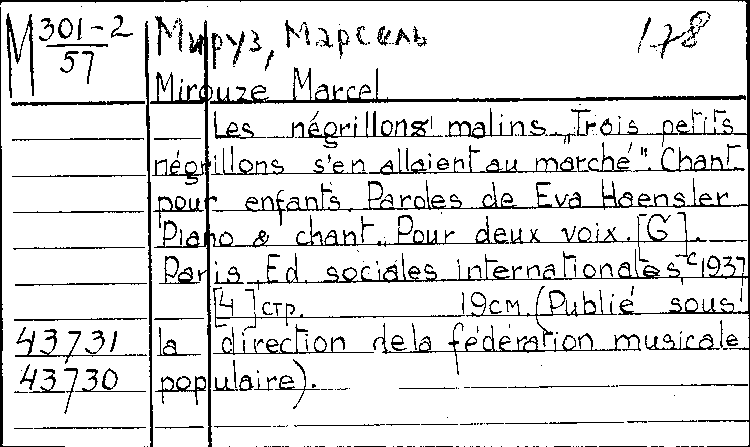 М 301-2/57
Мируз, Марсель 178
Mirouze Marcel
Les négrillons malins. „Trois petits
négrillons s'en allaient au marché". Chant
pour enfants. Paroles de Eva Haensler
Piano & chant. Pour deux voix. [G].
Paris, Ed. sociales internationales, c1937
[4] стр. 19см. (Publié sous
43731 la direction de la fédération musicale
43730 populaire).